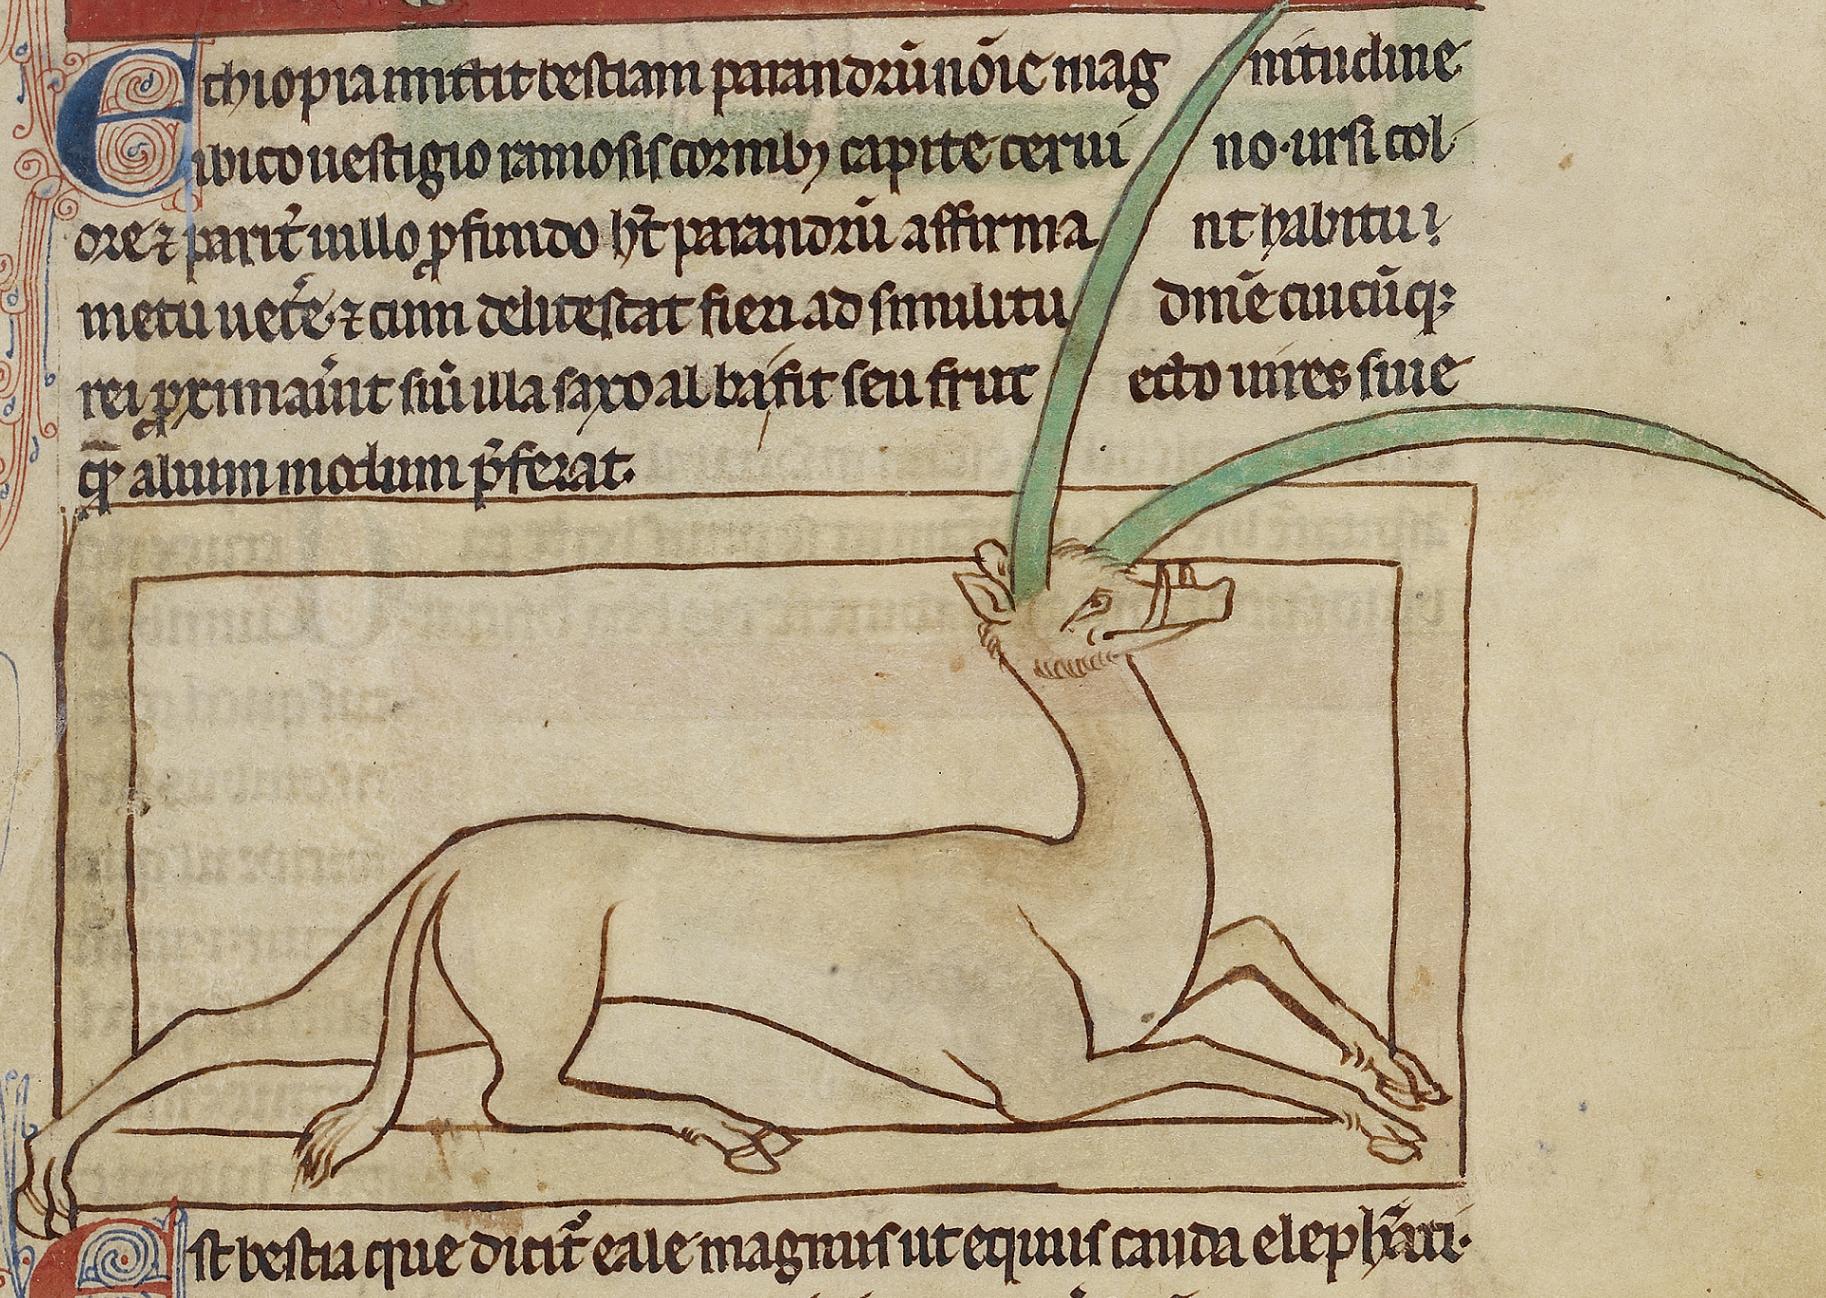 Ethiopia mittit bestiam parandrū nōīe mag nitudine
ibico uestigio ramosis cornibꝫ capite cerui no· ursi col
ore ⁊ parit̄ uillo ꝓfundo h̄t parandrū affirma nt habitū
metu uert̄e· ⁊ cum delitescat fieri ad similitu dinē cuicūqꝫ
rei ꝓximau̾it siū illa saxo alba sit seu frut ecto uires siue
quē alium modum p̄ferat·
Est bestia que dicit̄ eale magnus ut equus cauda elephāti·